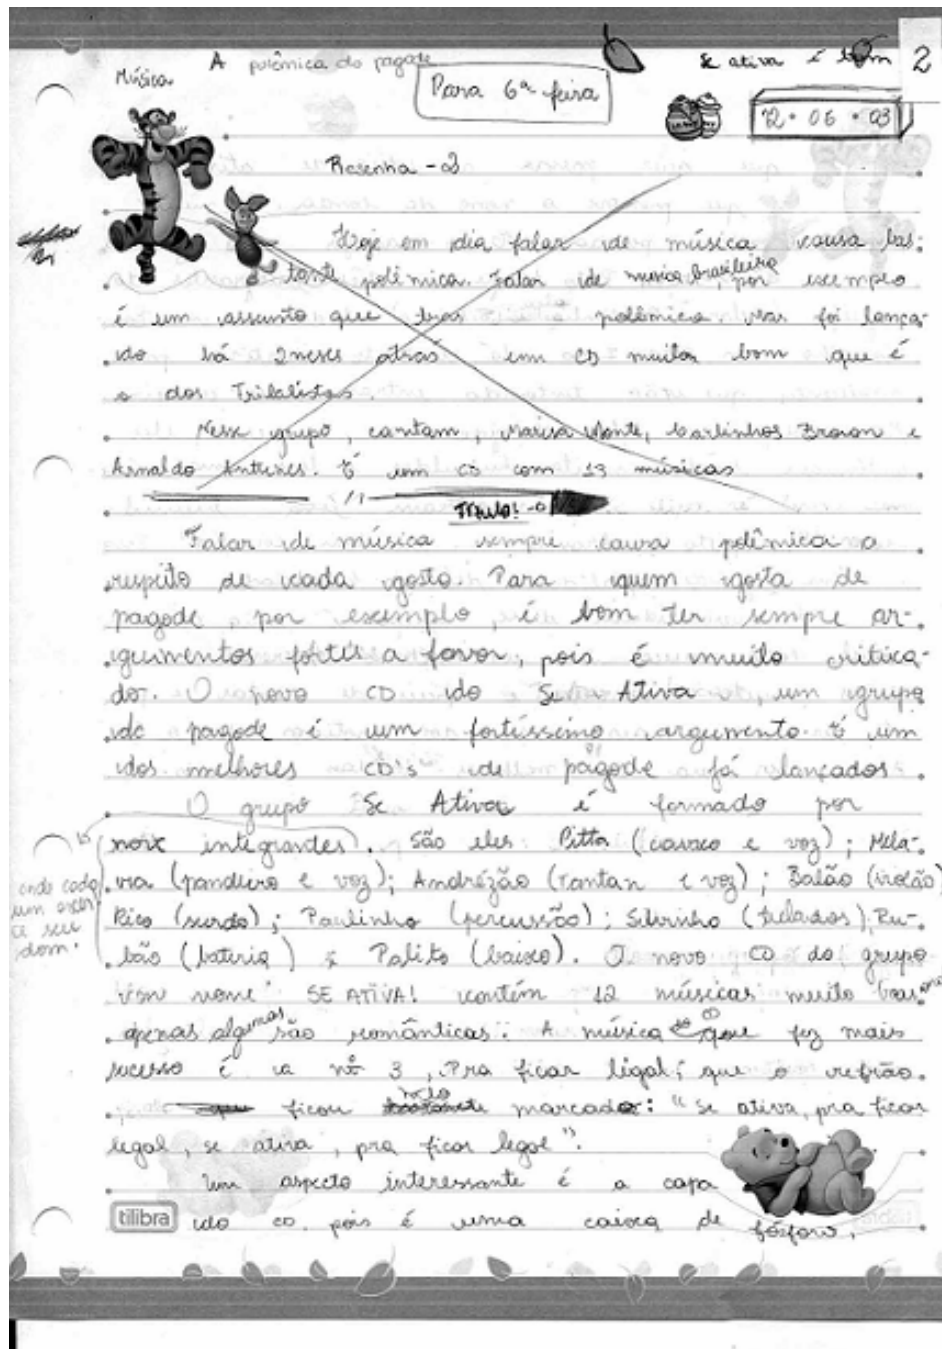 A polêmica do pagode
Se ativa é bom
2
Música
Para 6ª feira
12 • 06 • 03
Resenha - 2
Hoje em dia falar de música causa bas-
tante polêmica. Falar de musica brasileira, por exemplo
é um assunto que tras polêmica. Mas foi lança-
do há 2 meses atrás um CD muito bom que é
o dos Tribalistas.
Nesse grupo, cantam, Marisa Monte, Carlinhos Brown e
Arnaldo Antunes. É um CD com 13 músicas
Título!
Falar de música sempre causa polêmica a
respeito de cada gosto. Para quem gosta de
pagode por exemplo, é bom ter sempre ar-
gumentos fortes a favor, pois é muito critica-
do. O novo CD do Se Ativa, um grupo
de pagode é um fortíssimo argumento. É um
dos melhores CD's de "pagode" já lançados.
O grupo Se Ativa é formado por
nove integrantes. São eles Pitta (cavaco e voz);
(pandeiro e voz); Andrézão (tantan e voz); Balão (violão)
Rico (surdo); Paulinho (percussão); Silvinho (teclados), Ru-
bão (bateria) e Palito (baixo). O novo CD do grupo
onde cada
um exer
ce seu
dom.
nome SE ATIVA! contém 12 músicas muito boas
apenas algumas são românticas. A música que fez mais
sucesso é a nº 3, Pra ficar legal; que o refrão
ficou marcado: "Se ativa, pra ficar
legal, se ativa, pra ficar legal".
Um aspecto interessante é a capa
tilibra
do CD, pois é uma caixa de fósforo,